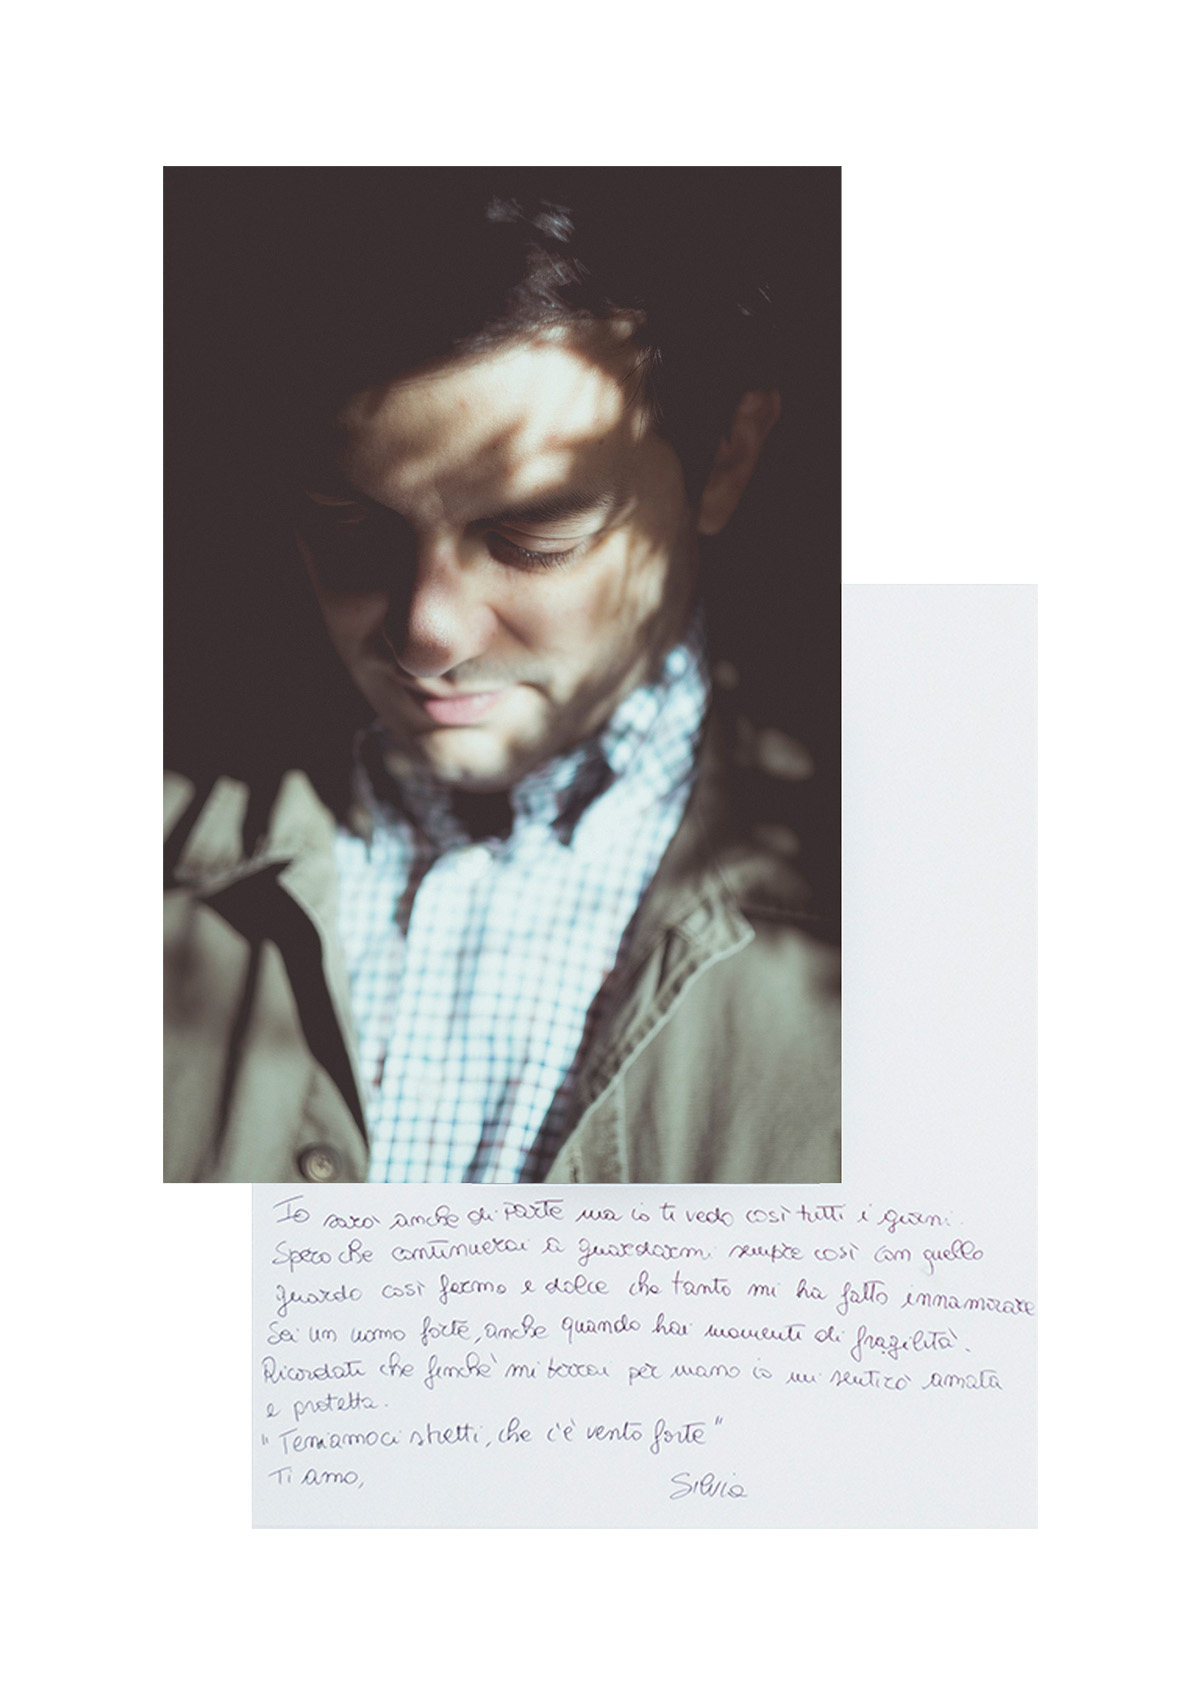 Io sarò anche di parte ma io ti vedo così tutti i giorni.
Spero che continuerai a guardarmi sempre così con quello
guardo così fermo e dolce che tanto mi ha fatto innamorare
Sei un uomo forte, anche quando hai momenti di fragilità.
Ricordati che finchè mi terrai per mano io mi sentirò amata
e protetta.
"Teniamoci stretti, che c'è vento forte"
Ti amo,
Silvia